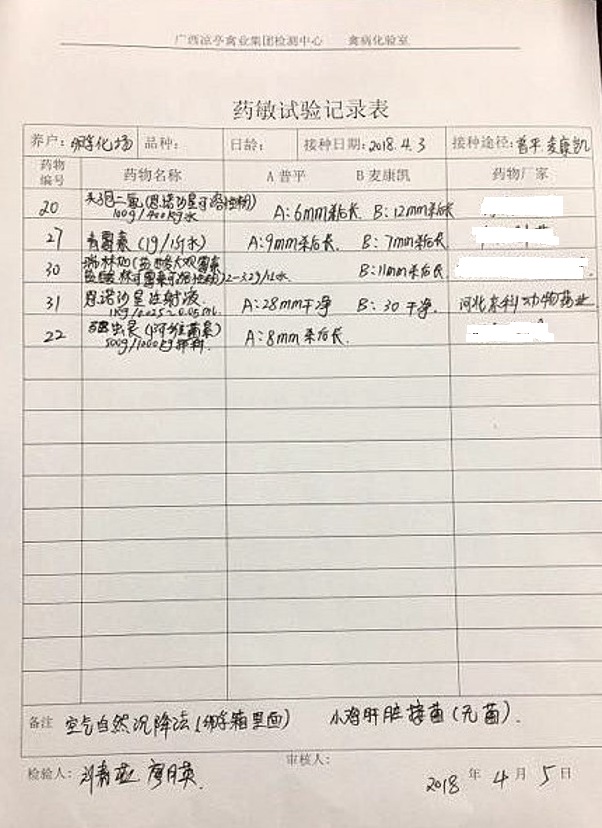 广西凉亭禽业集团检测中心 禽病化验室
药敏试验记录表
养户: 孵化场 品种: 日龄: 接种日期: 2018.4.3 接种途径: 普平 麦康凯
药物编号 药物名称 A 普平 B 麦康凯 药物厂家
20 头孢二氧(恩诺沙星可溶性粉) A: 6mm杂后长 B: 12mm杂后长
100g/400kg水
27 青霉素(1g/15斤水) A: 9mm杂后长 B: 7mm杂后长
30 (盐酸大观霉素 B: 11mm杂后长
盐酸林可霉素可溶性粉)
31 恩诺沙星注射液 A: 28mm干净 B: 30干净 河北 科动物药业
1kg/0.025~0.05ml
22 (阿维菌素) A: 8mm杂后长
500g/1000kg饲料
备注 空气自然沉降法(孵箱里面) 小鸡肝脏接菌(无菌).
审核人:
检验人: 廖月英 2018 年 4 月 5 日